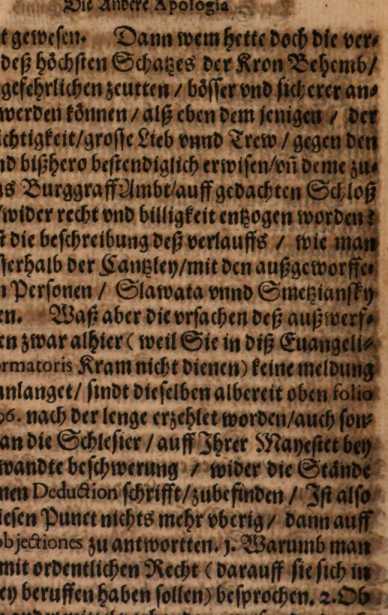 Die Andere Apologia
t gewesen. Dann wem hette doch die ver-
deß höchsten Schatzes der Kron Behemb/
gefehrlichen zeutten / bösser vnd sicherer an-
werden können / alß eben dem jenigen / der
ichtigkeit/grosse Lieb vnnd Trew / gegen den
nd bißhero bestendiglich erwisen/vn̄ deme zu-
as Burggraff Ambt/auff gedachten Schloß
/wider recht vnd billigkeit entzogen worden?
st die beschreibung deß verlauffs / wie man
sserhalb der Cantzley/mit den außgeworffe-
n Personen / Slawata vnnd Smetziansky
en. Waß aber die vrsachen deß außwerf-
en zwar alhier ( weil Sie in diß Euangeli-
ormatoris Kram nicht dienen) keine meldung
anlanget/ sindt dieselben albereit oben folio
96. nach der lenge erzehlet worden/auch son-
an die Schlesier / auff Ihrer Mayestet bey
wandte beschwerung / wider die Stände
nen Deduction schrifft/zubefinden / Ist also
iesen Punct nichts mehr vberig/ dann auff
objectiones zu antwortten. 1. Warumb man
mit ordentlichen Recht ( darauff sie sich in
ey beruffen haben sollen) besprochen. 2. Ob